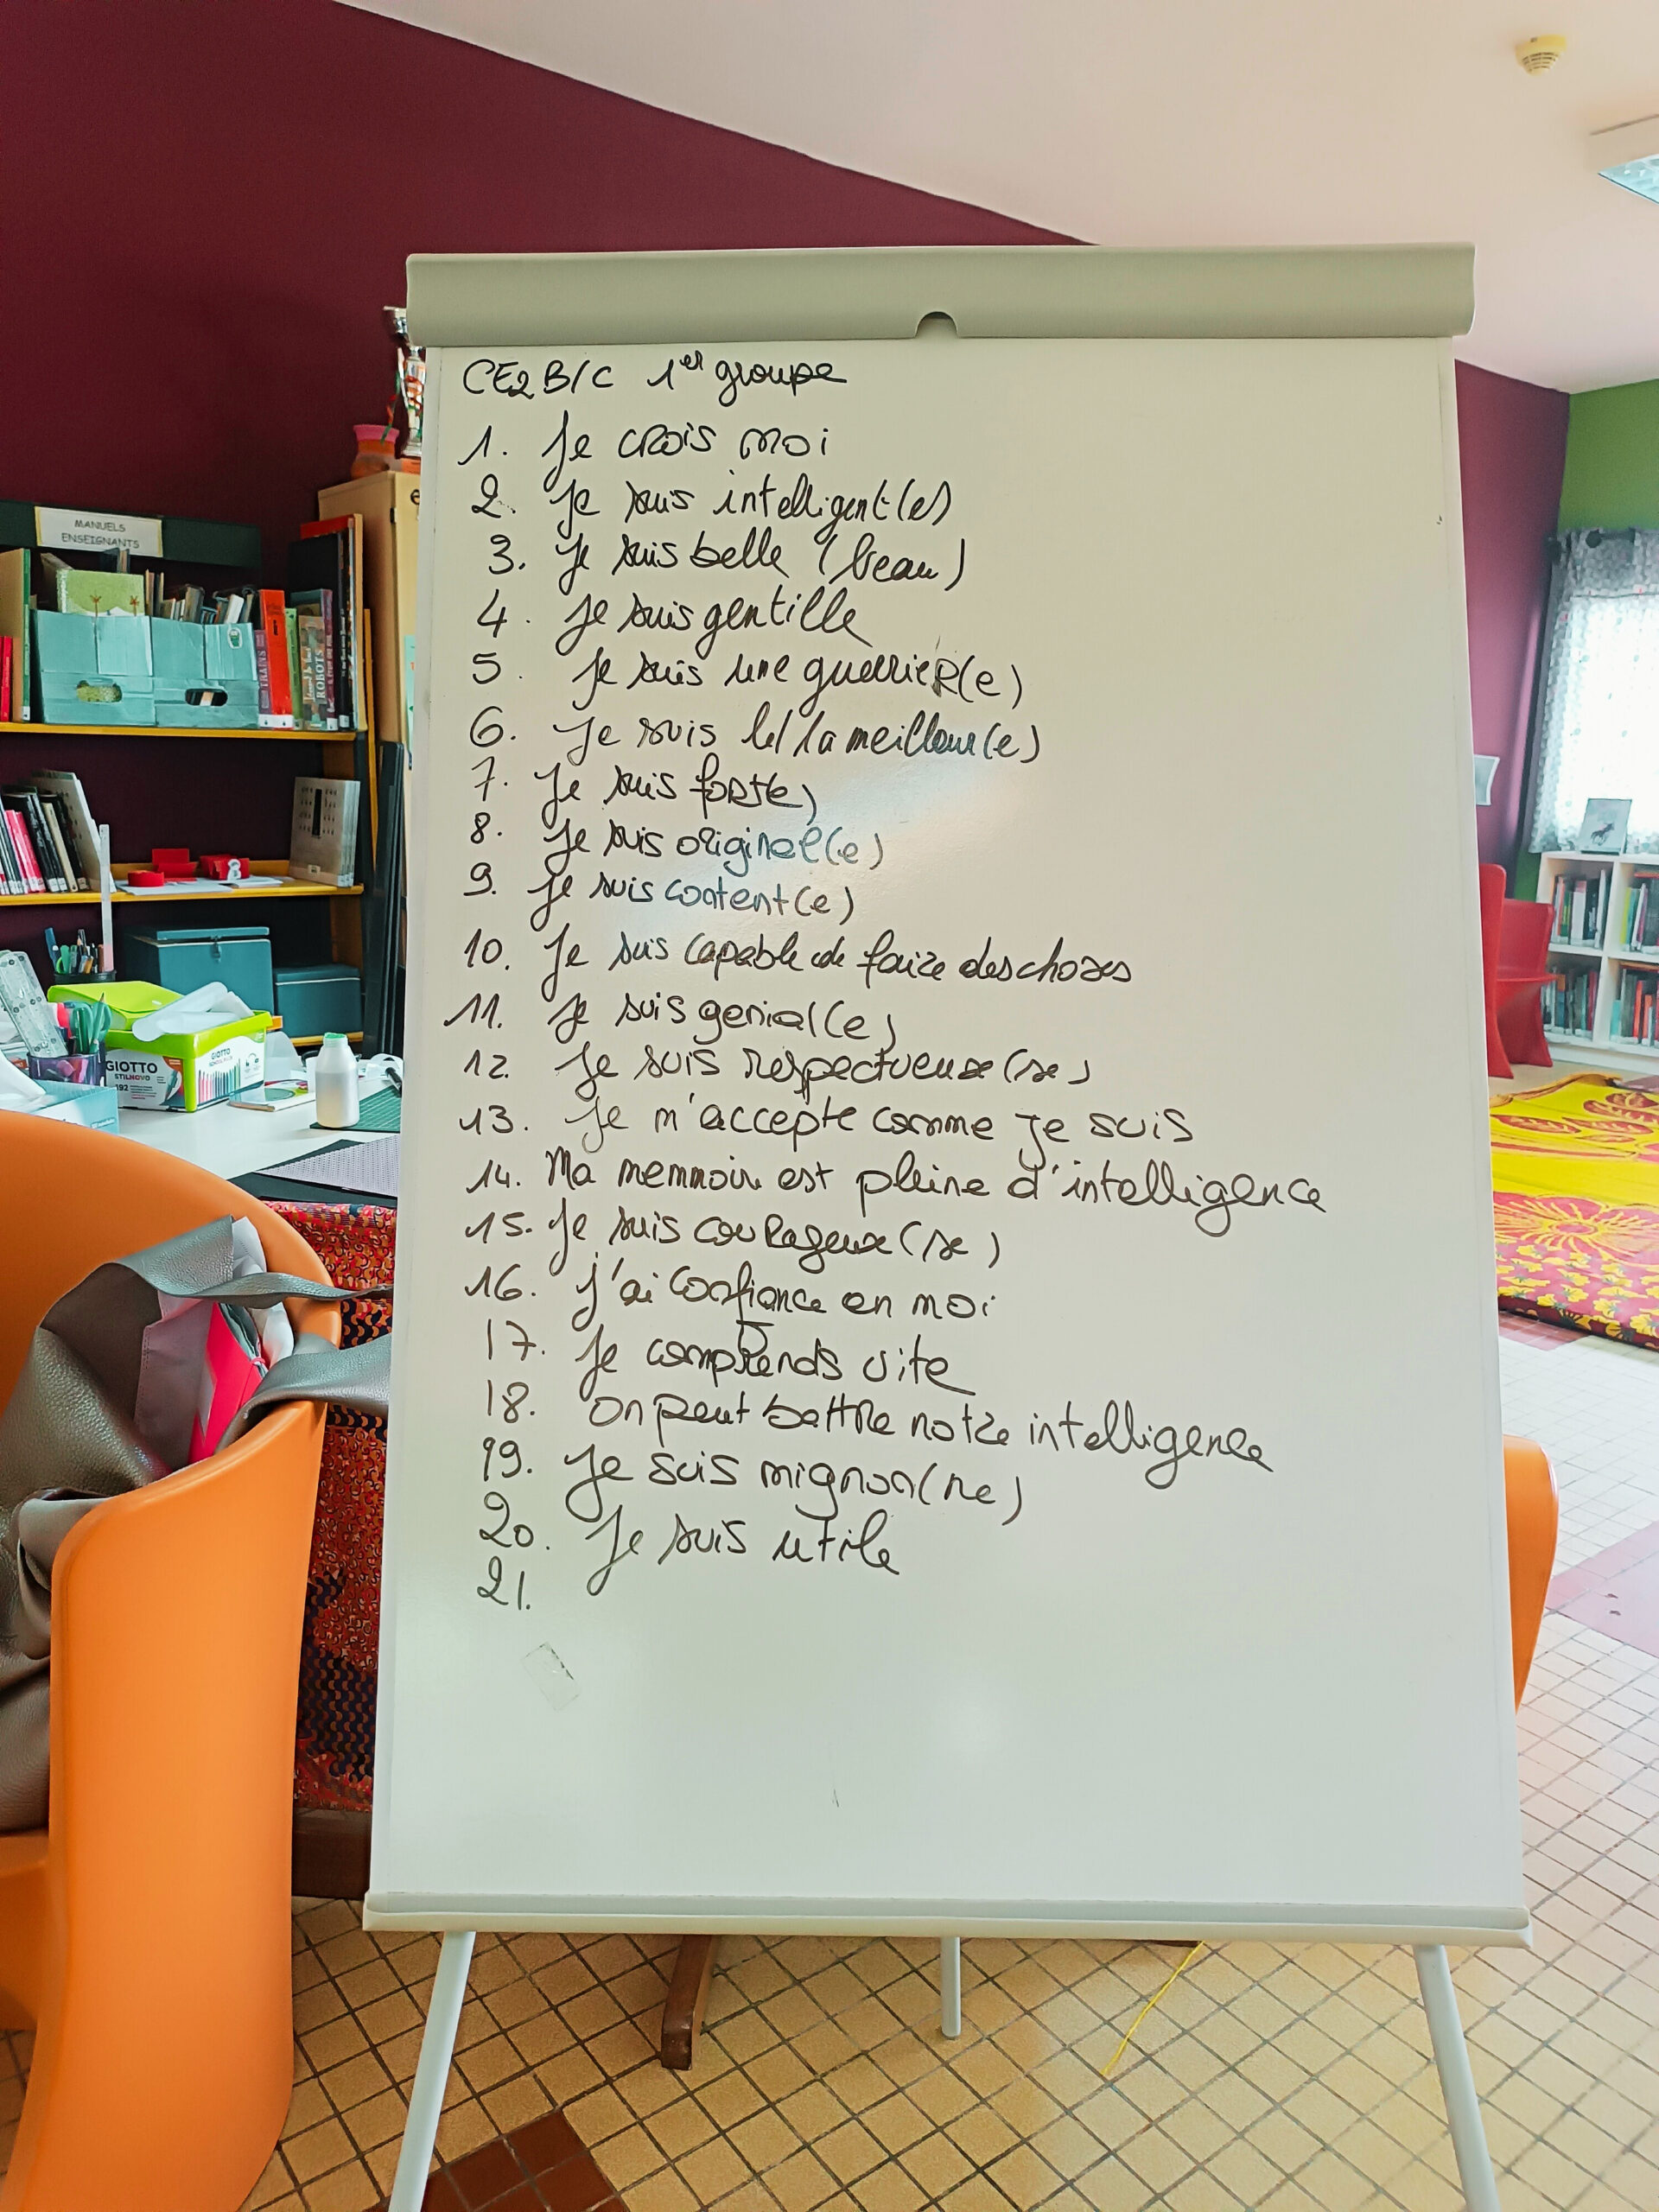 CE2 B/C 1er groupe
1. Je crois moi
2. Je suis intelligent(e)
3. Je suis belle (beau)
4. Je suis gentille
5. Je suis une guerrier(e)
6. Je suis le/la meilleur(e)
7. Je suis forte)
8. Je suis original(e)
9. Je suis content(e)
10. Je suis capable de faire des choses
11. Je suis genial(e)
12. Je suis respectueux(se)
13. Je m'accepte comme je suis
14. Ma memmoire est pleine d'intelligence
15. Je suis courageux(se)
16. J'ai confiance en moi
17. Je comprends vite
18. On peut battre notre intelligence
19. Je suis mignon(ne)
20. Je suis utile
21.
MANUELS
ENSEIGNANTS
TRAINS
ROBOTS
GIOTTO
STILNOVO
192
GIOTTO